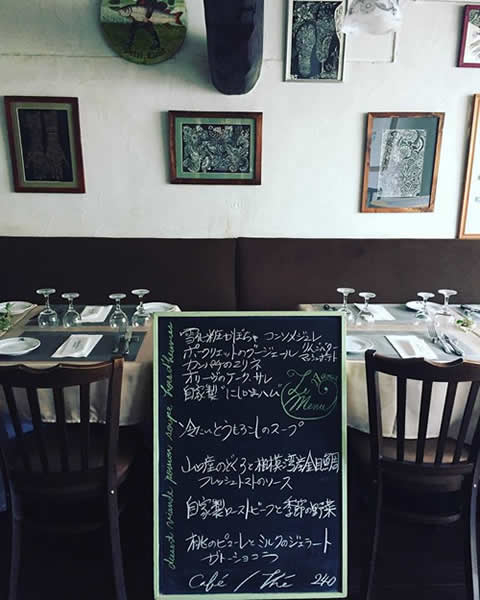 雪化粧かぼちゃ コンソメジュレ
ポークリエットのグージェール
カンパチのマリネ
オリーブのケーク・サレ
自家製"にし生ハム"
Le Menu
冷たいとうもろこしのスープ
山口産のどぐろと相模湾産金目鯛
フレッシュトマトのソース
自家製ローストビーフと季節の野菜
桃のピューレとミルクのジェラート
ガトーショコラ
Café / Thé 240
dessert viande poisson soupe hors d'œuvres